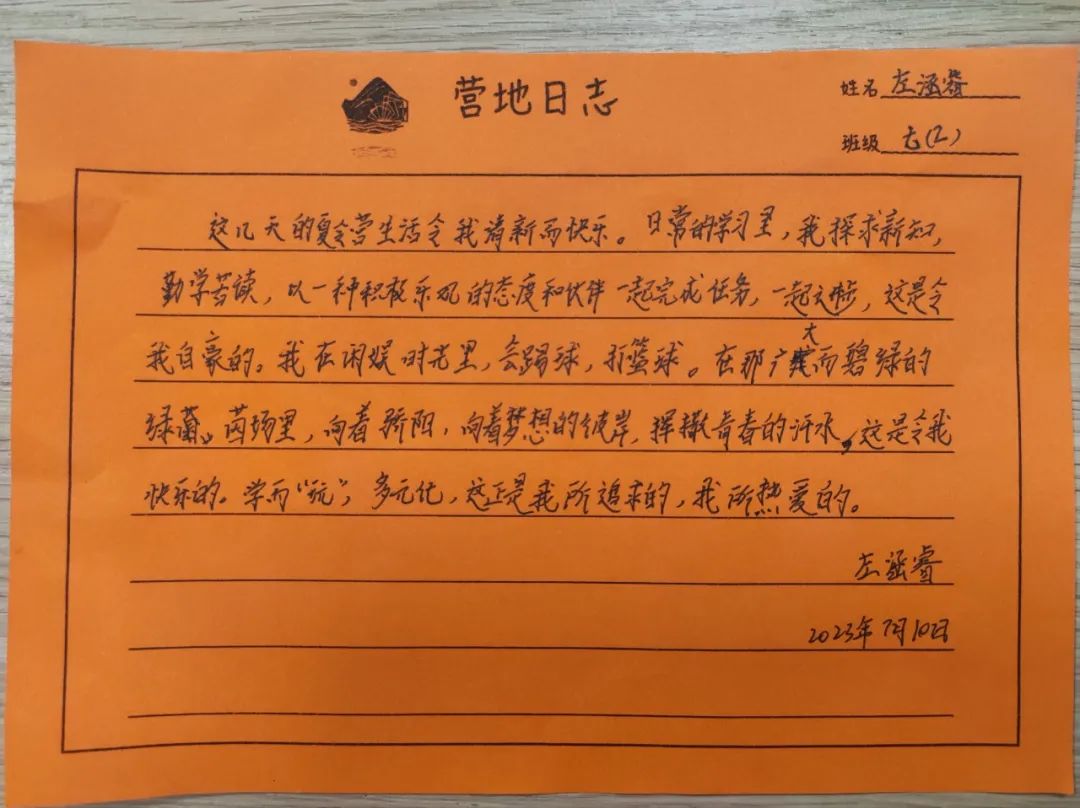 营地日志
姓名 左涵睿
班级 七(2)
这几天的夏令营生活令我清新而快乐。日常的学习里，我探求新知，
勤学苦读，以一种积极乐观的态度和伙伴一起完成任务，一起进步，这是令
我自豪的。我在闲娱时光里，会踢球，打篮球。在那广大而碧绿的
绿茵场里，向着骄阳，向着梦想的彼岸，挥撒青春的汗水，这是令我
快乐的。学而“玩”，多元化，这正是我所追求的，我所热爱的。
左涵睿
2023年7月10日